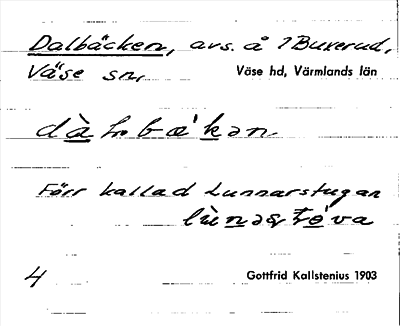 Dalbäcken, avs. å ? Buxerud,
Väse sn, Väse hd, Värmlands län
Förr kallad Lunnarstugan
4 Gottfrid Kallstenius 1903